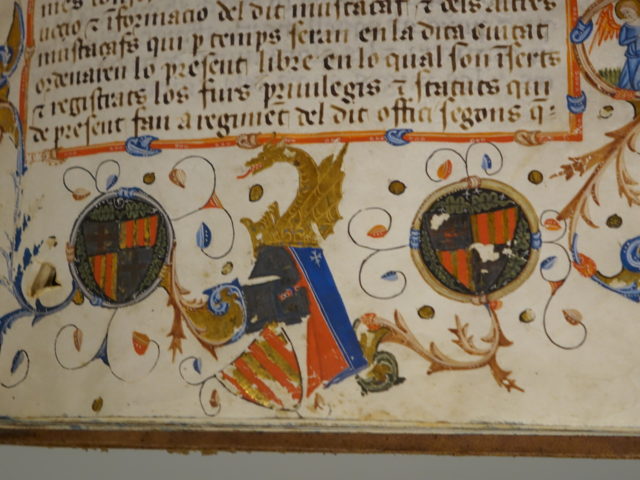 informacio del dit mustaçaf ⁊ dels altres
mustaçafs qui p temps seran en la dita ciutat
ordenaren lo present libre en lo qual son iserts
⁊ registrats los furs priuilegis ⁊ statuts qui
de present fan a regimēt del dit offici segons q̄